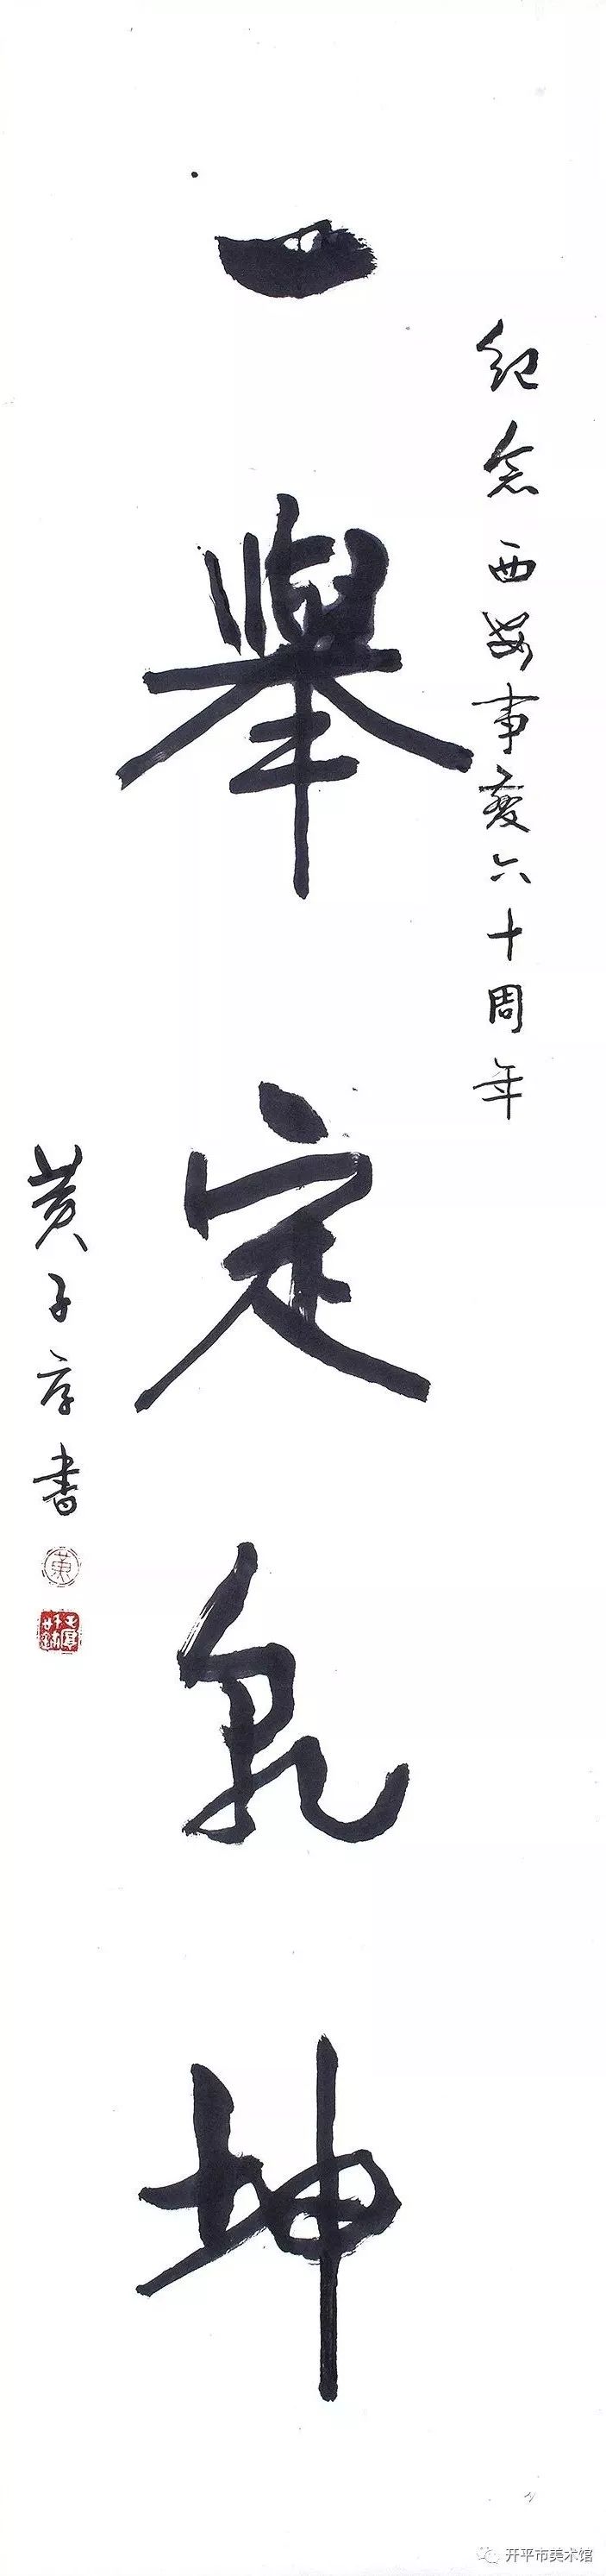 紀念西安事變六十周年
一舉定乾坤
黄子厚書
黄
开平市美术馆